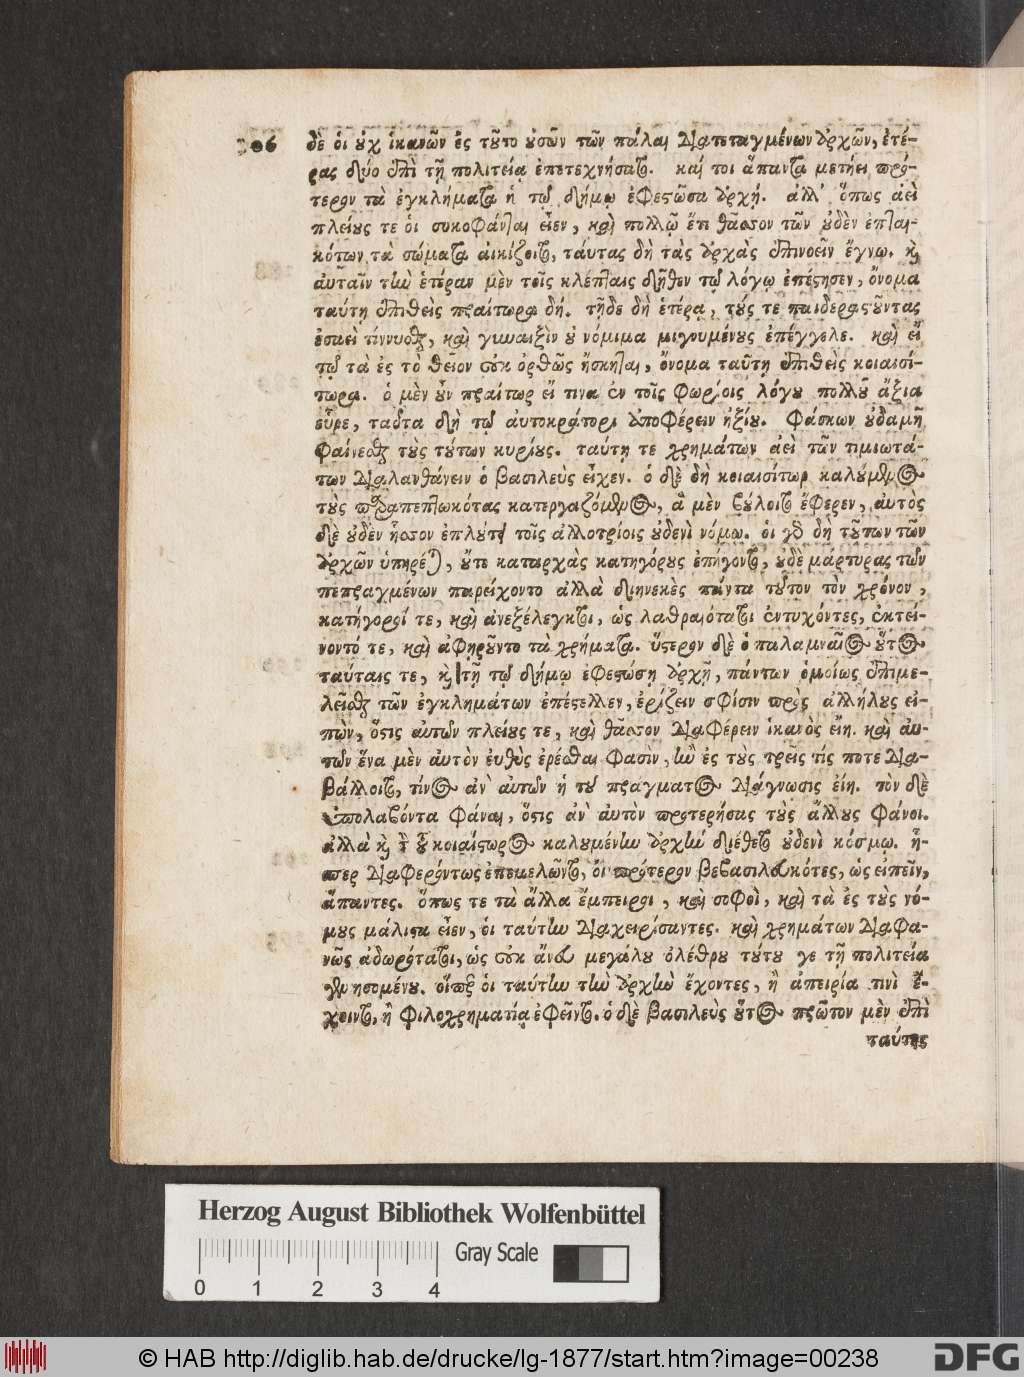 306 δὲ οἱ οὐχ ἱκανῶν ἐς τοῦτο οὐσῶν τῶν πάλαι διατεταγμένων ἀρχῶν, ἑτέ-
ρας δύο ἐπὶ τῇ πολιτείᾳ ἐπετεχνήσατο. καί τοι ἅπαντα μετῄει πρό-
τερον τὰ ἐγκλήματα ἡ τῷ δήμῳ ἐφεστῶσα ἀρχή. ἀλλ' ὅπως ἀεὶ
πλείους τε οἱ συκοφάνται εἶεν, καὶ πολλῷ ἔτι θᾶσσον τῶν οὐδὲν ἐπται-
κότων τὰ σώματα αἰκίζοιτο, ταύτας δὴ τὰς ἀρχὰς ἐπινοεῖν ἔγνω. καὶ
αὐταῖν τὴν ἑτέραν μὲν τοῖς κλέπταις δῆθεν τῷ λόγῳ ἐπέστησεν, ὄνομα
ταύτῃ ἐπιθεὶς πραίτωρα δή. τῇδε δὴ ἑτέρᾳ, τούς τε παιδεραστοῦντας
ἐσαεὶ τίννυσθαι, καὶ γυναιξὶν οὐ νόμιμα μιγνυμένους ἐπήγγελε. καὶ εἴ
τῳ τὰ ἐς τὸ θεῖον οὐκ ὀρθῶς ἤσκηται, ὄνομα ταύτῃ ἐπιθεὶς κοιαισί-
τωρα. ὁ μὲν οὖν πραίτωρ εἴ τινα ἐν τοῖς φωρίοις λόγου πολλοῦ ἄξια
εὗρε, ταῦτα δὴ τῷ αὐτοκράτορι ἀποφέρειν ἠξίου. φάσκων οὐδαμῆ
φαίνεσθαι τοὺς τούτων κυρίους. ταύτῃ τε χρημάτων ἀεὶ τῶν τιμιωτά-
των διαλανθάνειν ὁ βασιλεὺς εἶχεν. ὁ δὲ δὴ κοιαισίτωρ καλούμενος
τοὺς παραπεπτωκότας κατεργαζόμενος, ἃ μὲν βούλοιτο ἔφερεν, αὐτὸς
δὲ οὐδὲν ἧσσον ἐπλούτει τοῖς ἀλλοτρίοις οὐδενὶ νόμῳ. οἱ γὰρ δὴ τούτων τῶν
ἀρχῶν ὑπηρέται, οὔτε καταρχὰς κατηγόρους ἐπήγοντο, οὐδὲ μάρτυρας τῶν
πεπραγμένων παρείχοντο ἀλλὰ διηνεκὲς πάντα τοῦτον τὸν χρόνον,
κατήγοροί τε, καὶ ἀνεξέλεγκτοι, ὡς λαθραιότατοι ἐντυχόντες, ἐκτεί-
νοντό τε, καὶ ἀφῃροῦντο τὰ χρήματα. ὕστερον δὲ ὁ παλαμναῖος οὗτος
ταύταις τε, καὶ τῇ τῷ δήμῳ ἐφεστώσῃ ἀρχῇ, πάντων ὁμοίως ἐπιμε-
λεῖσθαι τῶν ἐγκλημάτων ἐπέστελλεν, ἐρίζειν σφίσιν πρὸς ἀλλήλους εἰ-
πὼν, ὅστις αὐτῶν πλείους τε, καὶ θᾶσσον διαφέρειν ἱκανὸς εἴη. καὶ αὐ-
τῶν ἕνα μὲν αὐτὸν εὐθὺς ἐρέσθαι φασὶν, ἢν ἐς τοὺς τρεῖς τίς ποτε δια-
βάλλοιτο, τίνος ἂν αὐτῶν ἡ τοῦ πράγματος διάγνωσις εἴη. τὸν δὲ
ὑπολαβόντα φάναι, ὅστις ἂν αὐτὸν προτερήσας τοὺς ἄλλους φάνοι.
ἀλλὰ καὶ τὴν τοῦ κοιαίστωρος καλουμένην ἀρχὴν διέθετο οὐδενὶ κόσμῳ. ἧ-
σπερ διαφερόντως ἐπεμελῶντο, οἱ πρότερον βεβασιλευκότες, ὡς εἰπεῖν,
ἅπαντες. ὅπως τε τὰ ἄλλα ἔμπειροι, καὶ σοφοὶ, καὶ τὰ ἐς τοὺς νό-
μους μάλιστα εἶεν, οἱ ταύτην διαχειρίσαντες. καὶ χρημάτων διαφα-
νῶς ἀδωρότατοι, ὡς οὐκ ἄνευ μεγάλου ὀλέθρου τούτου γε τῇ πολιτείᾳ
γενησομένου. οἵπερ οἱ ταύτην τὴν ἀρχὴν ἔχοντες, ἢ ἀπειρίᾳ τινὶ ἔ-
χοιντο, ἢ φιλοχρηματίᾳ ἐφεῖντο. ὁ δὲ βασιλεὺς οὗτος πρῶτον μὲν ἐπὶ
ταύτης
Herzog August Bibliothek Wolfenbüttel
Gray Scale
0 1 2 3 4
© HAB http://diglib.hab.de/drucke/lg-1877/start.htm?image=00238
DFG